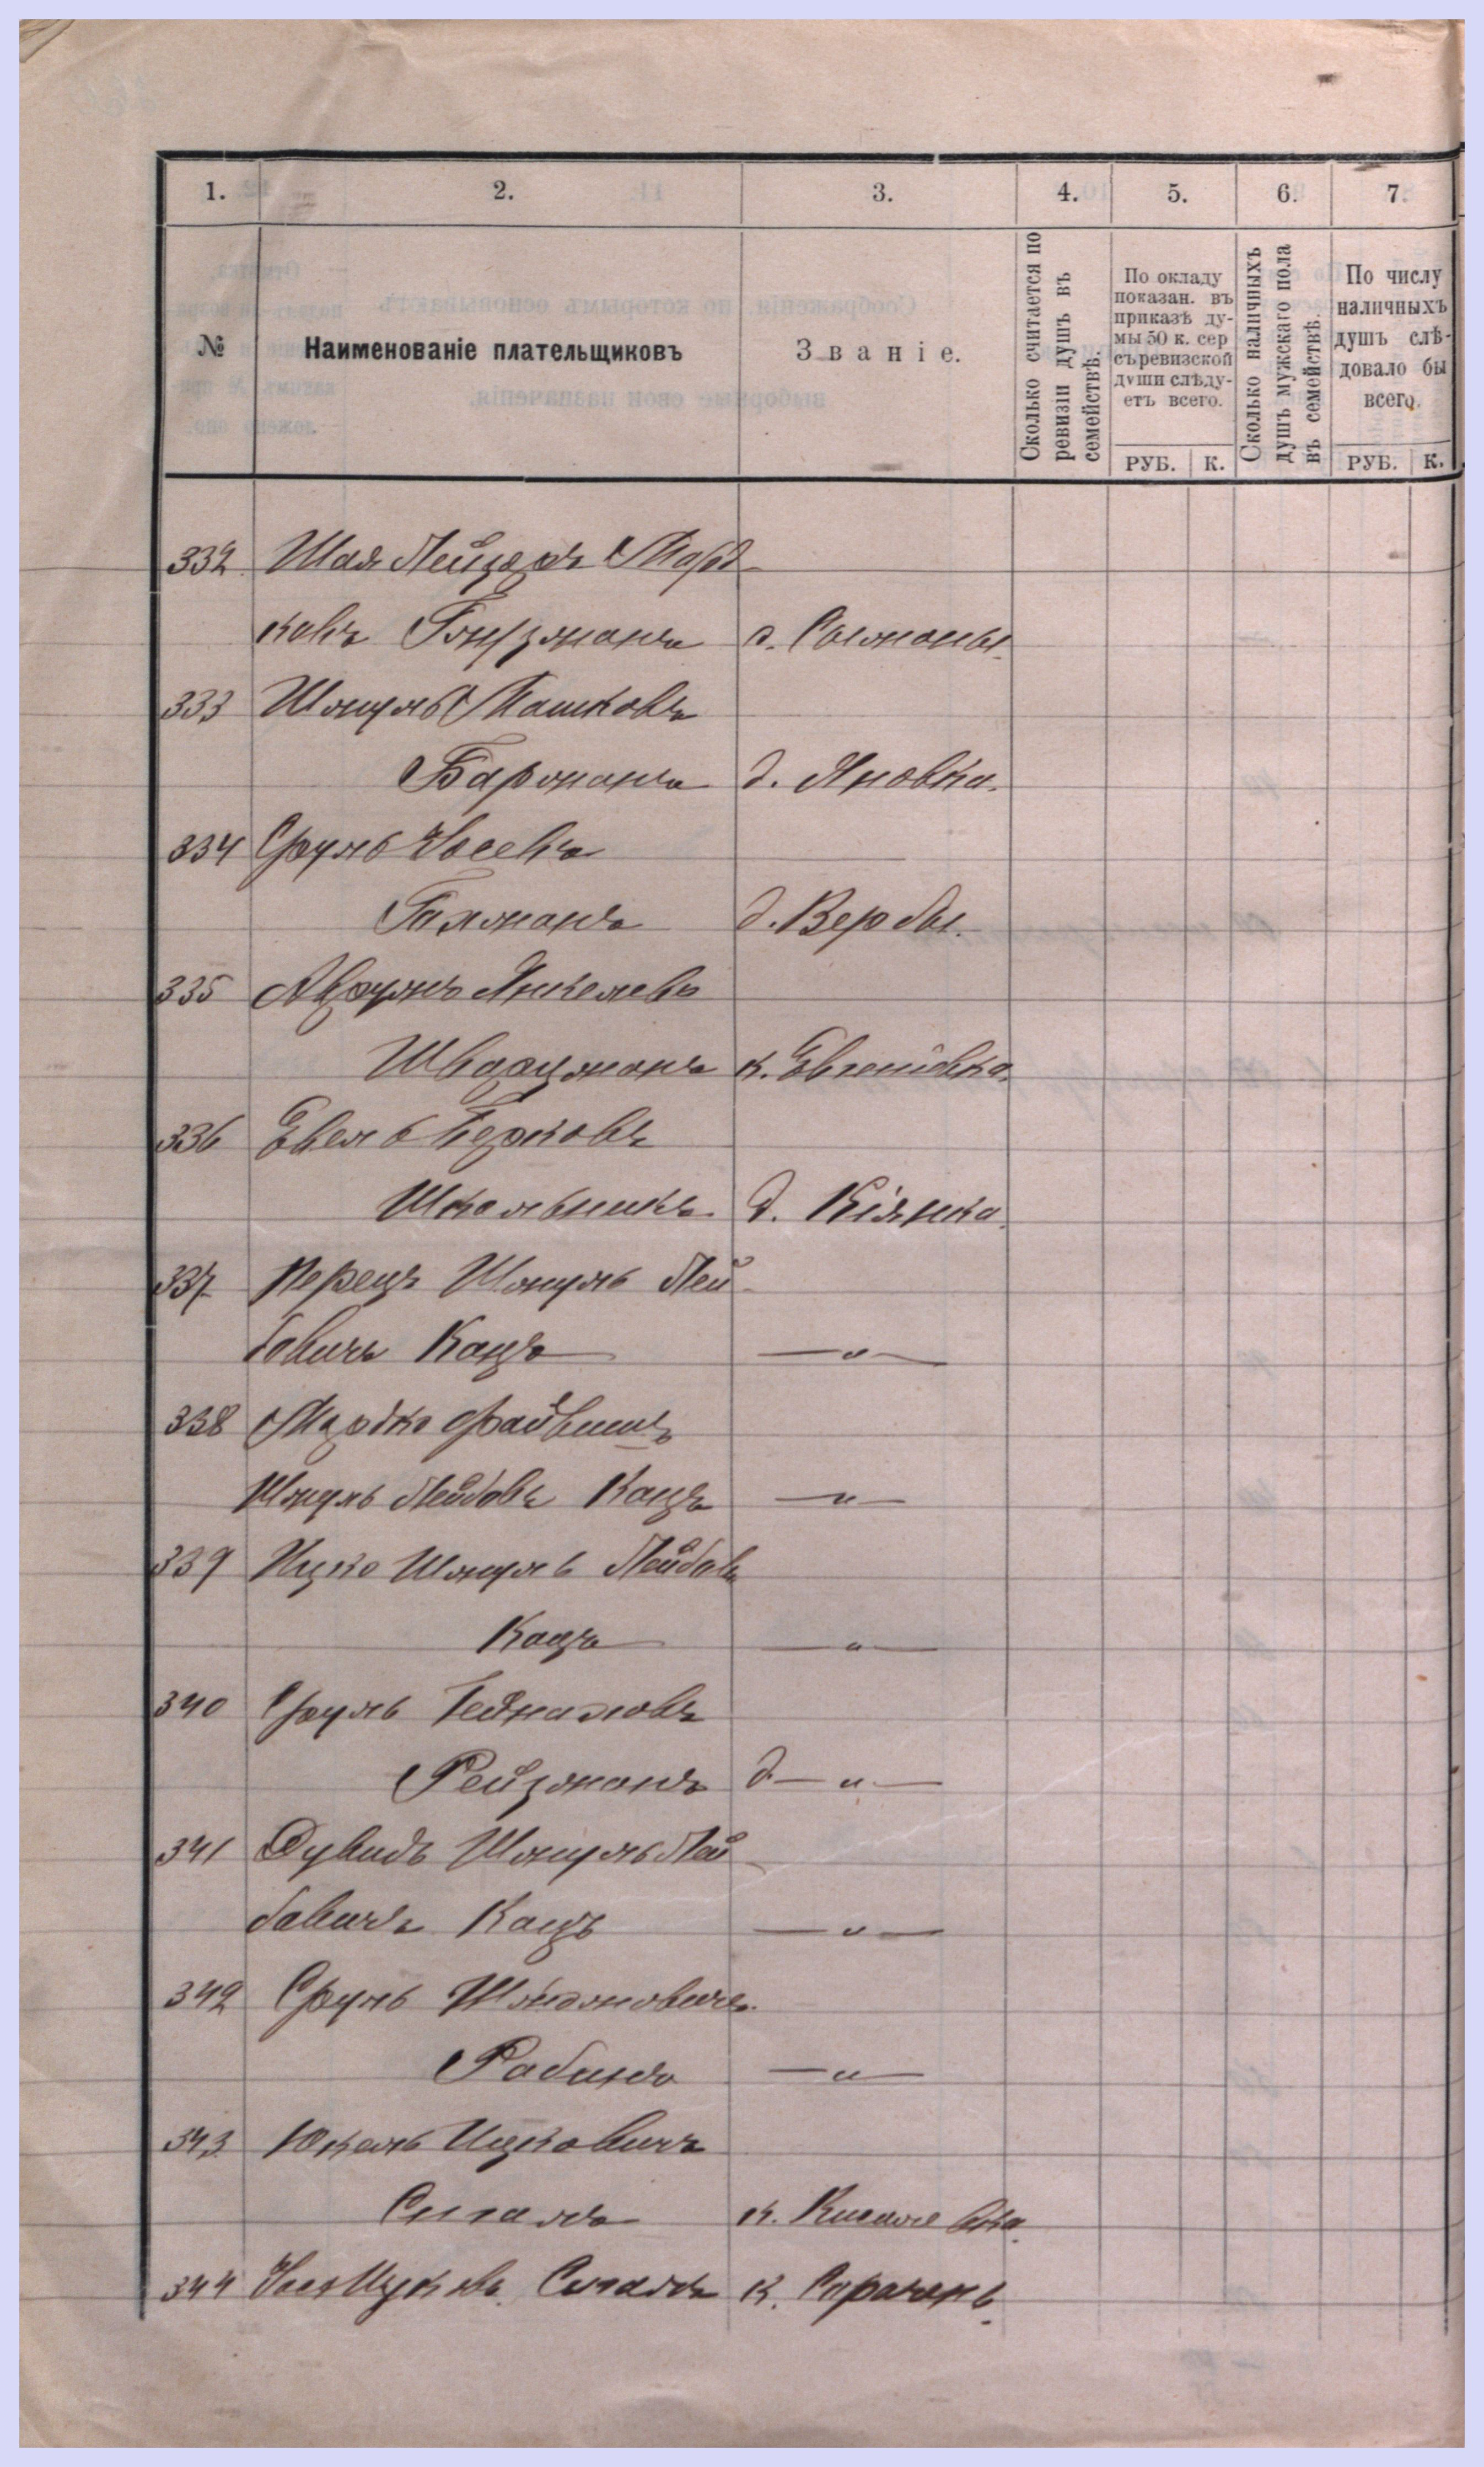 1. 2. 3. 4. 5. 6. 7.
№
Наименованіе плательщиковъ
Званіе.
Сколько считается по
ревизіи душъ въ
семействѣ.
По окладу
показан. въ
приказѣ ду-
мы 50 к. сер
съ ревизской
души слѣду-
етъ всего.
РУБ. К.
Сколько наличныхъ
душъ мужскаго пола
въ семействѣ.
По числу
наличныхъ
душъ слѣ-
довало бы
всего.
РУБ. К.
332 Шая Лейзеръ Морд-
ковъ
333 Шмуль Мошковъ
д. Яновка.
334 Сруль Іосевъ
д. Вербы.
335 Аврумъ Янкелевъ
Шварцманъ к.
336 Евель Берковъ
Школьникъ д. Кіянка.
337 Перецъ Шмуль Лей-
бовичъ Кацъ — „ —
338 Мордко Файвишъ
Шмуль Лейбовъ Кацъ — „ —
339 Ицко Шмуль Лейбовъ
Кацъ — „ —
340 Сруль
Рейзманъ д. — „ —
341 Дувидъ Шмуль Лей-
бовичъ Кацъ — „ —
342 Сруль
Рабинъ — „ —
343 Юкель Ицковичъ
Сигалъ к.
344 Ицковъ Сигалъ к.